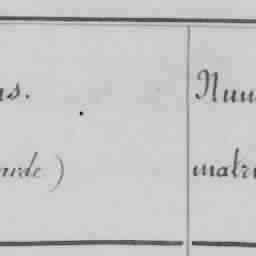 ns.
arde)
Num
matri